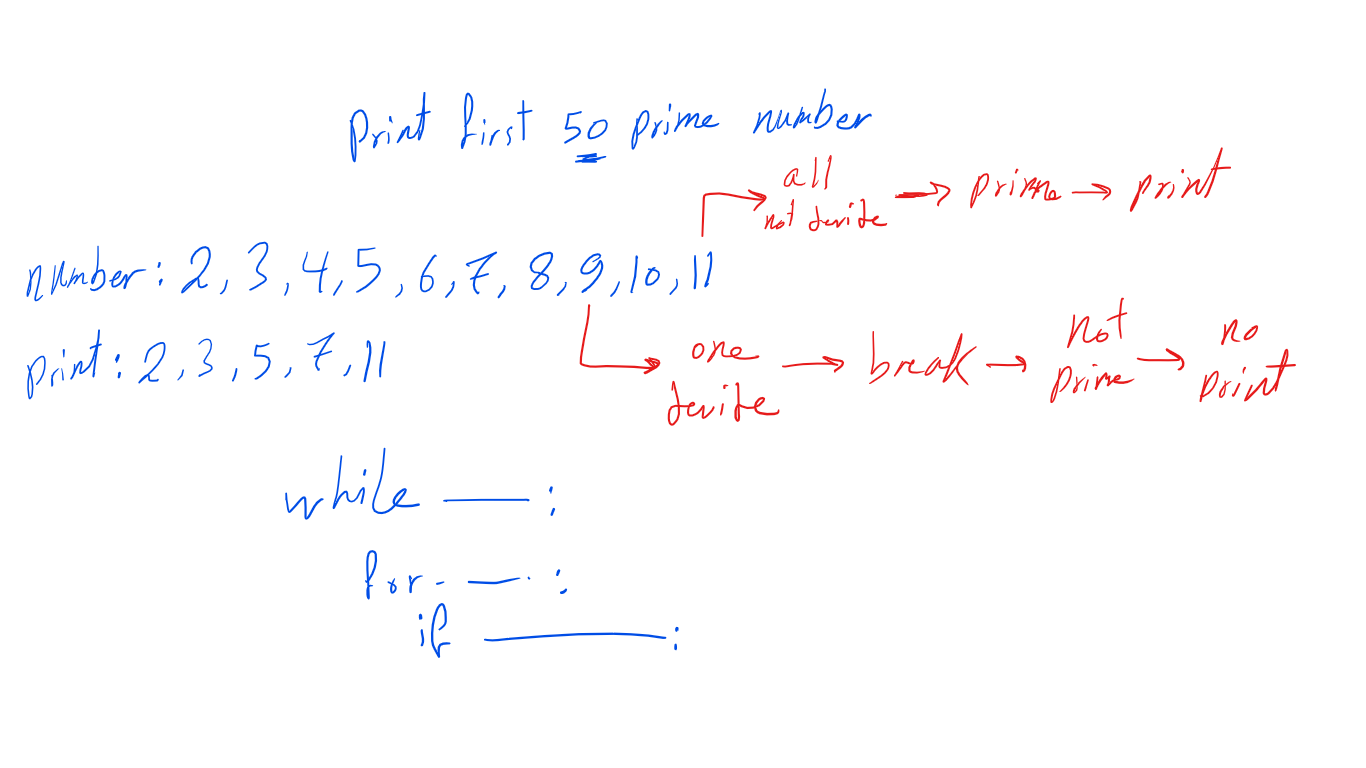 print first 50 prime number
all
not devide → prime → print
number: 2, 3, 4, 5, 6, 7, 8, 9, 10, 11
print: 2, 3, 5, 7, 11
one
devide → break → not
prime → no
print
while ___ :
for - ___ :
if ___ :